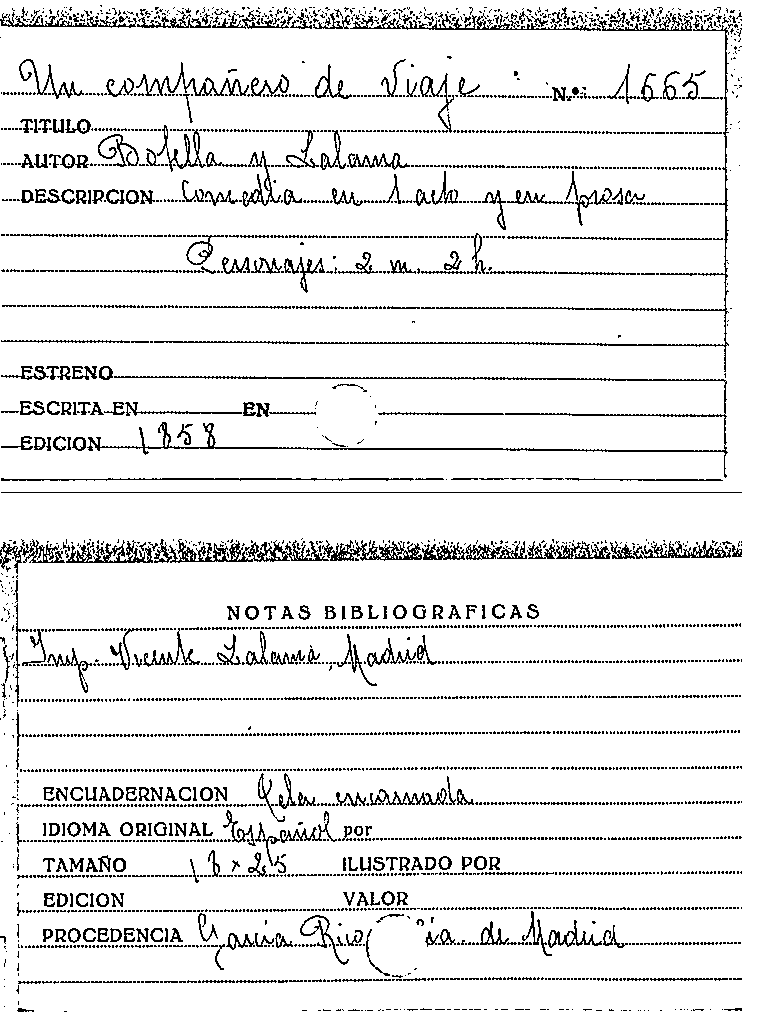 Un compañero de Viaje Nº: 1665
TITULO
AUTOR Botella y Lalama
DESCRIPCION Comedia en 1 acto y en prosa
Personajes: 2 m. 2 h.
ESTRENO
ESCRITA EN EN
EDICION 1858
NOTAS BIBLIOGRAFICAS
Imp. Vicente Lalama, Madrid
ENCUADERNACION Tela encarnada
IDIOMA ORIGINAL Español por
TAMAÑO 18 x 25 ILUSTRADO POR
EDICION VALOR
PROCEDENCIA García Rico de Madrid